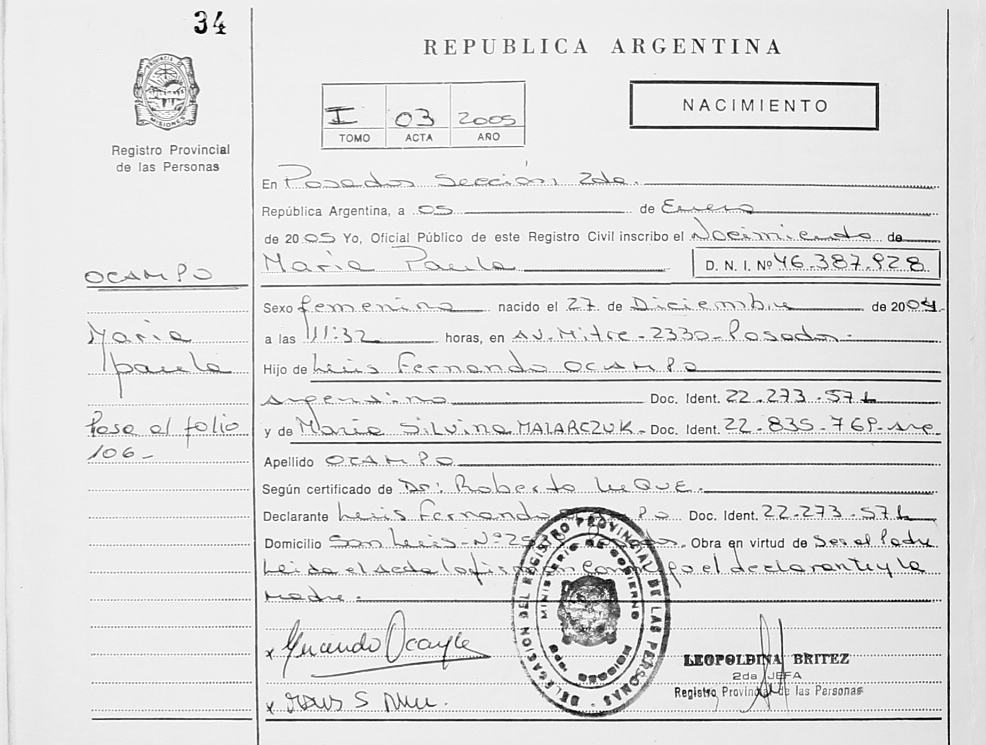 34
REPUBLICA ARGENTINA
PROVINCIA DE MISIONES
Registro Provincial
de las Personas
I 03 2005
TOMO ACTA AÑO
NACIMIENTO
En Posadas Sección, 2da.
República Argentina, a 05 de Enero
de 2005 Yo, Oficial Público de este Registro Civil inscribo el Nacimiento de
María Paula D. N. I. Nº 46.387.928
OCAMPO
María
paula
Pasa al folio
106-
Sexo femenino nacido el 27 de Diciembre de 2004
a las 11:32 horas, en AV. Mitre - 2330 - Posadas -
Hijo de Luis Fernando OCAMPO
argentino Doc. Ident. 22.273.571
y de María Silvina MALARCZUK - Doc. Ident. 22-835-769-arg.
Apellido OCAMPO
Según certificado de Dr: Roberto LUQUE.
Declarante Luis Fernando Doc. Ident. 22-273-571
Domicilio San Luis - Nº Obra en virtud de ser el Padre
Leida el acta la firman conmigo el declarante y la
madre.
DELEGACION DEL REGISTRO PROVINCIAL DE LAS PERSONAS
MINISTERIO DE GOBIERNO
LEOPOLDINA BRITEZ
2da JEFA
Registro Provincial de las Personas